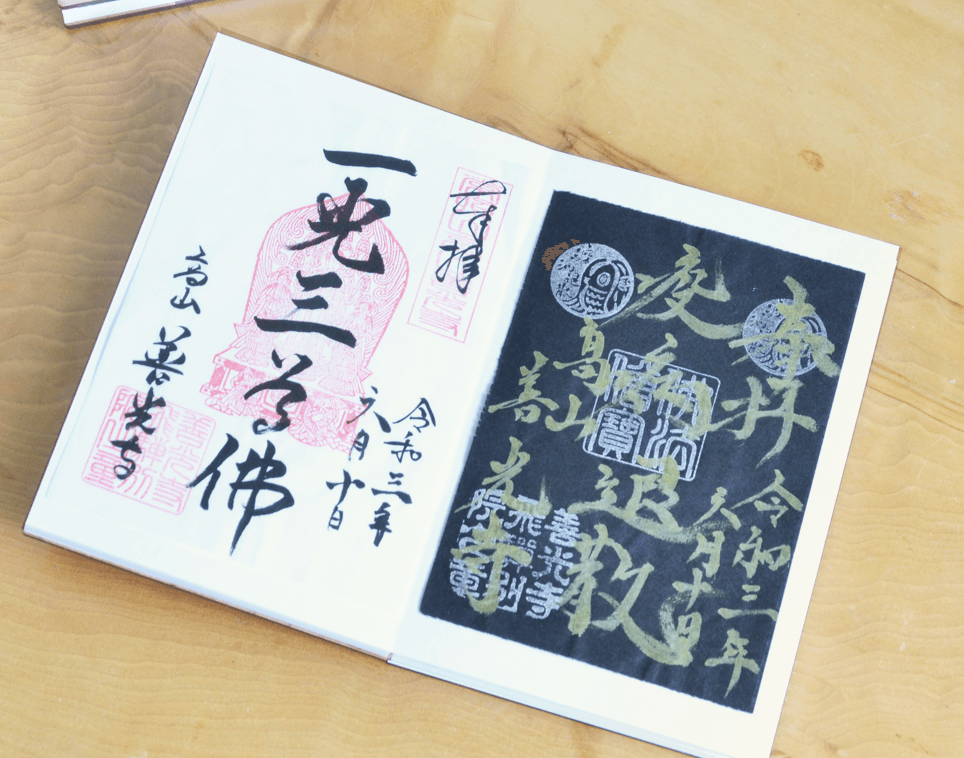 奉拝
令和三年
六月十日
疫病退散
佛法僧寶
高山
善光寺
善光寺
飛騨別
奉拝
令和三年
六月
十日
一光三尊佛
高山 善光寺
善光寺
飛騨別